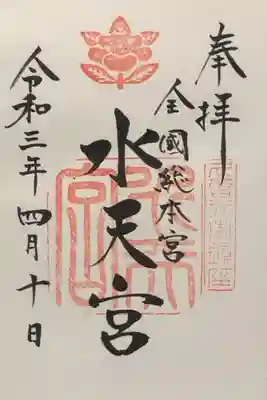 奉拝
全國総本宮
水天宮
令和三年四月十日